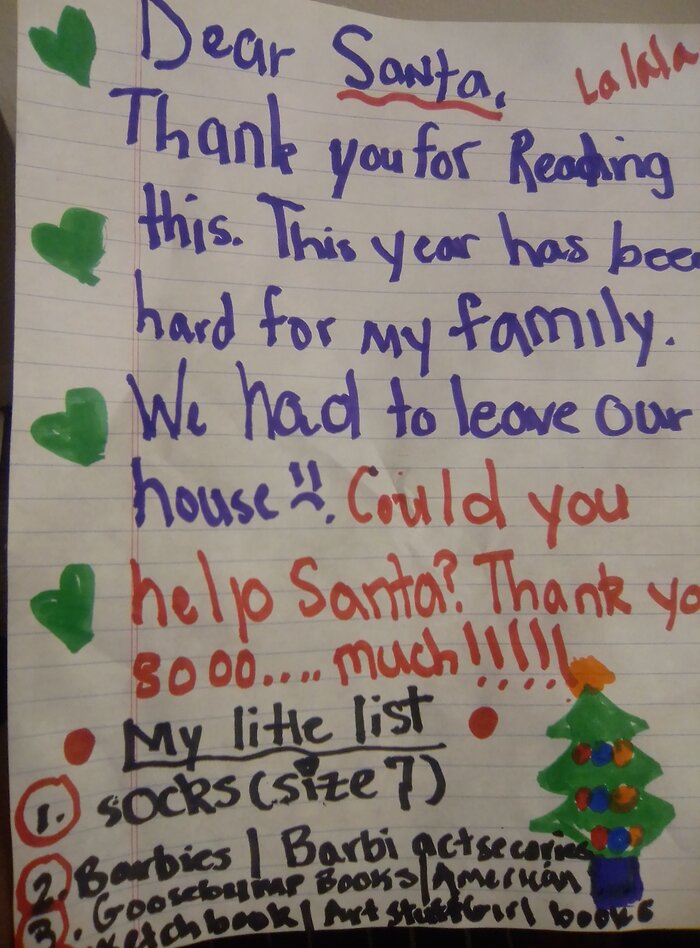 Dear Santa,
La lala
Thank you for Reading
this. This year has been
hard for my family.
We had to leave our
house. Could you
help Santa? Thank yo
sooo.... much!!!!!
My little list
1. socks (size 7)
2. Barbies | Barbi actsecories
Goosebump Books | American
3. sketchbook | Art stuff Girl books